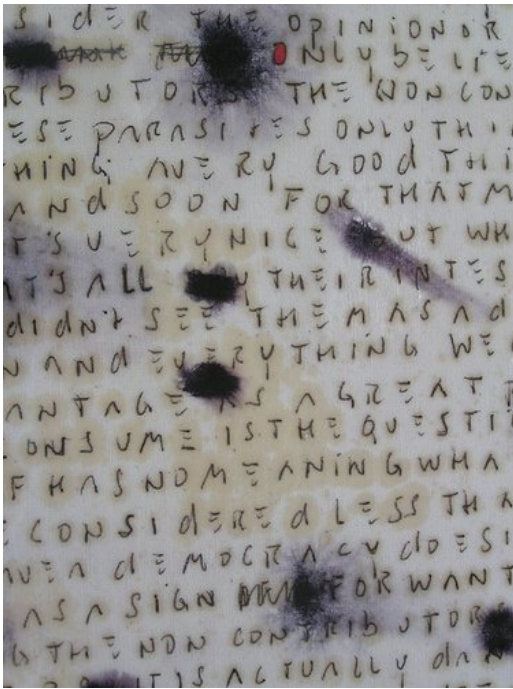 SIDER THE OPINION OR
ONLY BELIE
RIBUTORS THE NON CON
ESE PARASITES ONLY THI
HING A VERY GOOD THI
AND SOON FOR THAT M
T'S VERY NICE BUT WH
IT'S ALL THEIR INTES
didn't SEE THEM AS Ad
N ANd EVERYTHING WE
ANTAGE IS A GREAT
CONSUME IS THE QUESTI
F HAS NO MEANING WHA
CONSIdEREd LESS THA
AVE A dEMOCRACY dOES
AS A SIGN FOR WANT
G THE NON CONTRIbUTORS
IT IS ACTUALLY